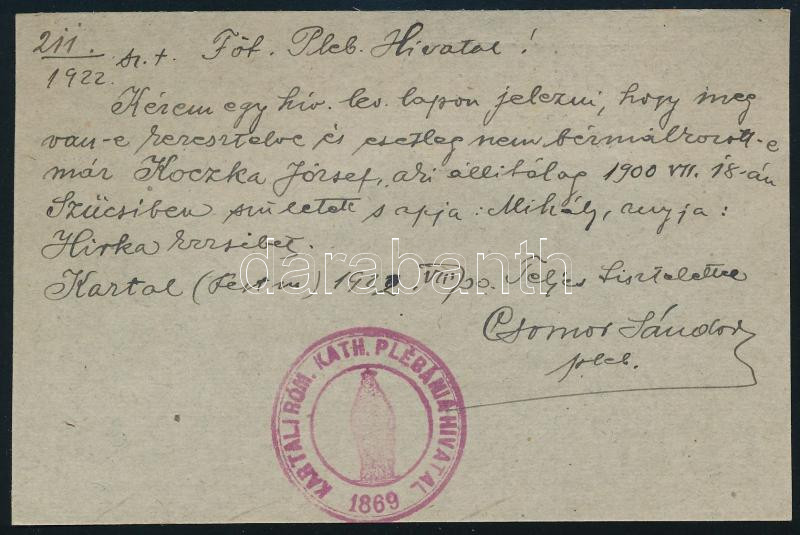 211.
1922. sz. +. Főt. Pleb. Hivatal!
Kérem egy hiv. lev. lapon jelezni, hogy meg
van-e keresztelve és esetleg nem bérmálkozott-e
már Koczka József, aki állitólag 1900 VII. 18-án
Szücsiben született s apja: Mihály, anyja:
Hirka Erzsébet.
Kartal (Pest m.) 1922 VIII/30. Teljes tisztelettel
Csomor Sándor
pleb.
darabanth
KARTALI RÓM. KATH. PLÉBÁNIA HIVATAL
1869